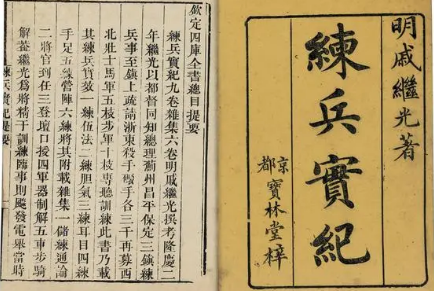 明戚繼光著
練兵實紀
京都寶林堂梓
欽定四庫全書總目提要
練兵實紀九卷雜集六卷明戚繼光撰考隆慶二
年繼光以都督同知總理薊州昌平保定三鎮練
兵事至鎮上疏請浙東殺手礟手各三千再募西
北壯士馬軍五枝步軍十枝專聽訓練此書乃載
其練兵實效一練伍法二練膽氣三練耳目四練
手足五練營陣六練將其附載雜集一儲練通論
二將官到任三登壇口授四軍器制解五車步騎
解葢繼光為將精于訓練臨事則飈發電舉當時
練兵實紀提要